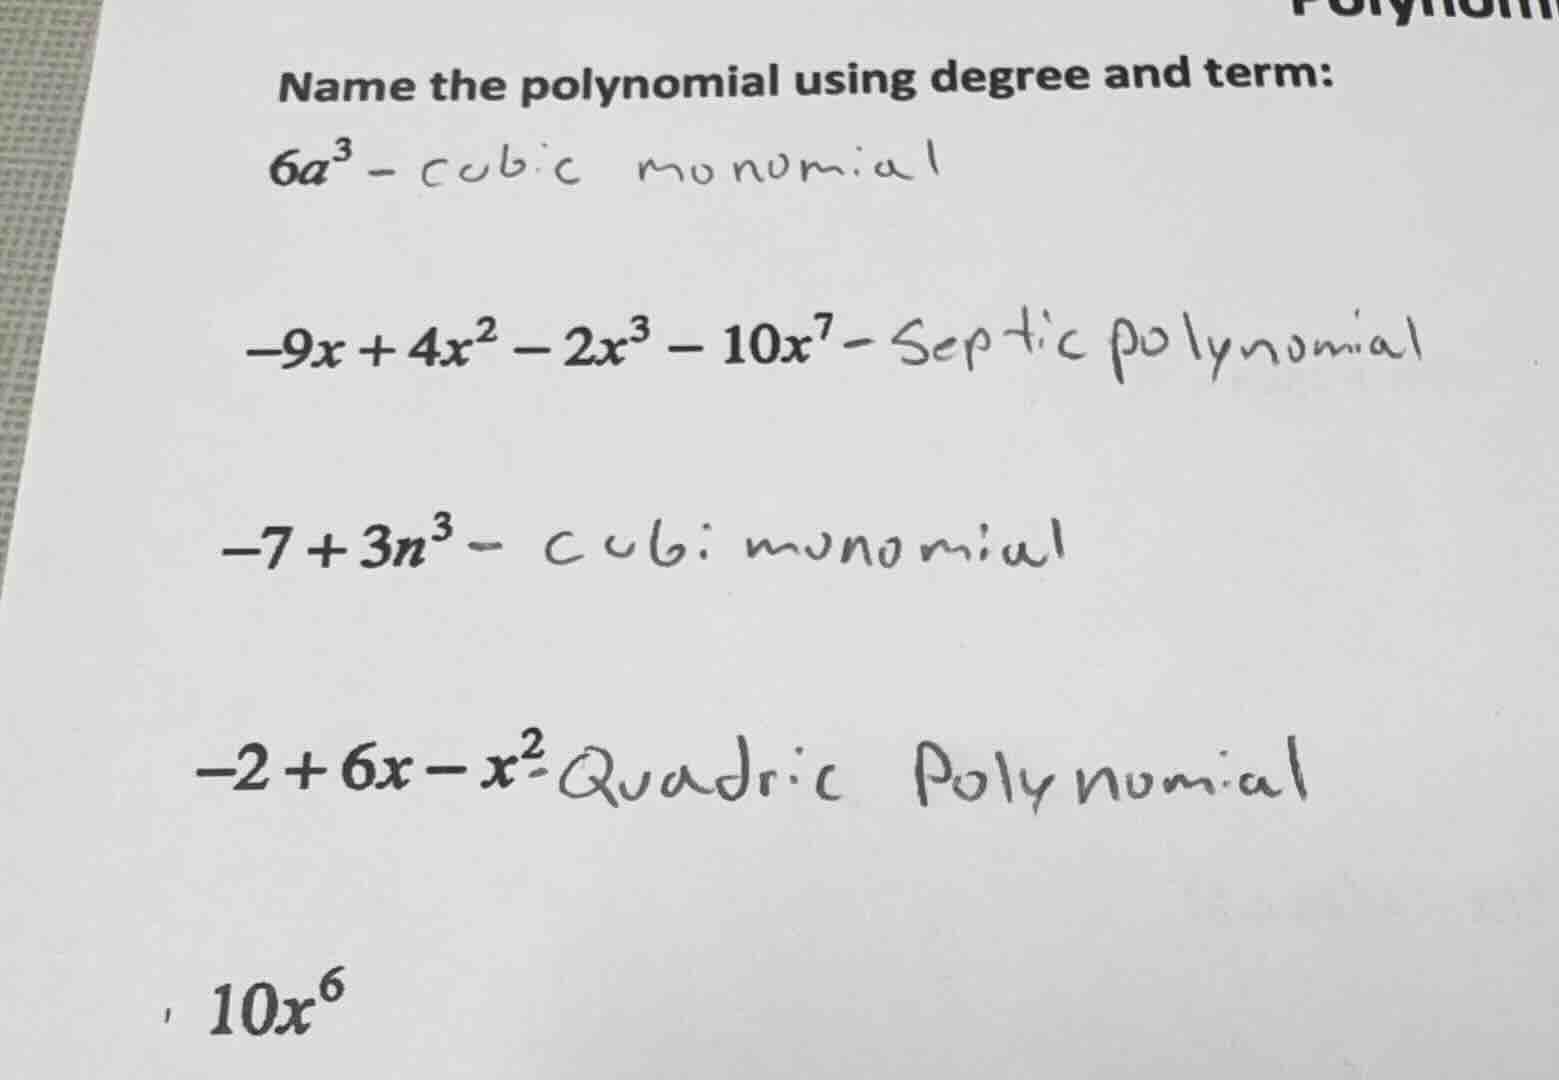 Name the polynomial using degree and term:
6a³ - cubic monomial
−9x + 4x² − 2x³ − 10x⁷ - Septic polynomial
−7 + 3n³ - cubi monomial
−2 + 6x − x² - Quadric Polynomial
10x⁶